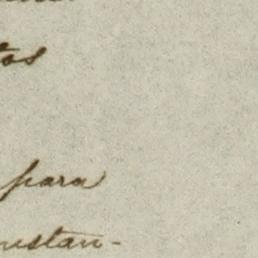 tos
para
nstan-